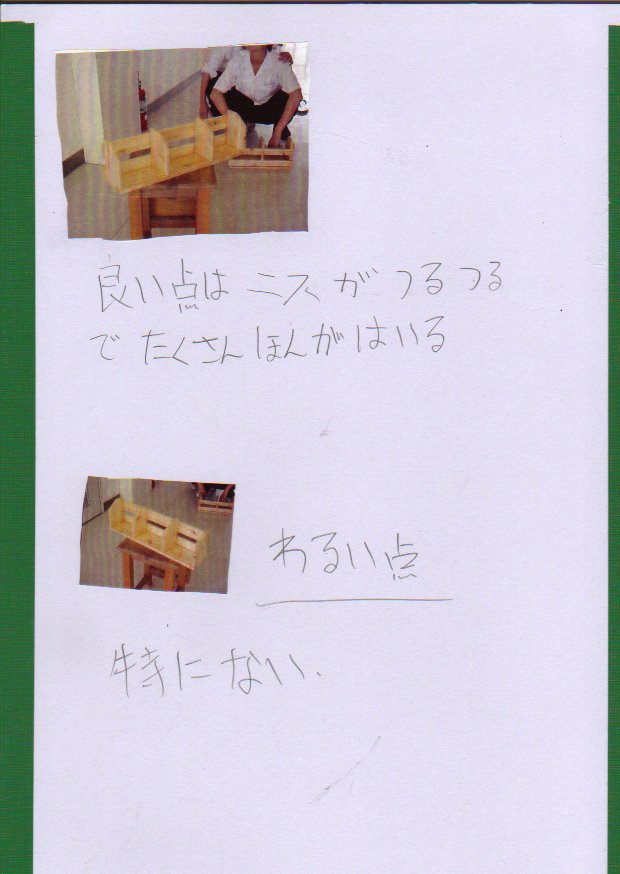 良い点は ニスが つるつる
で たくさん ほんが はいる
わるい点
特にない、